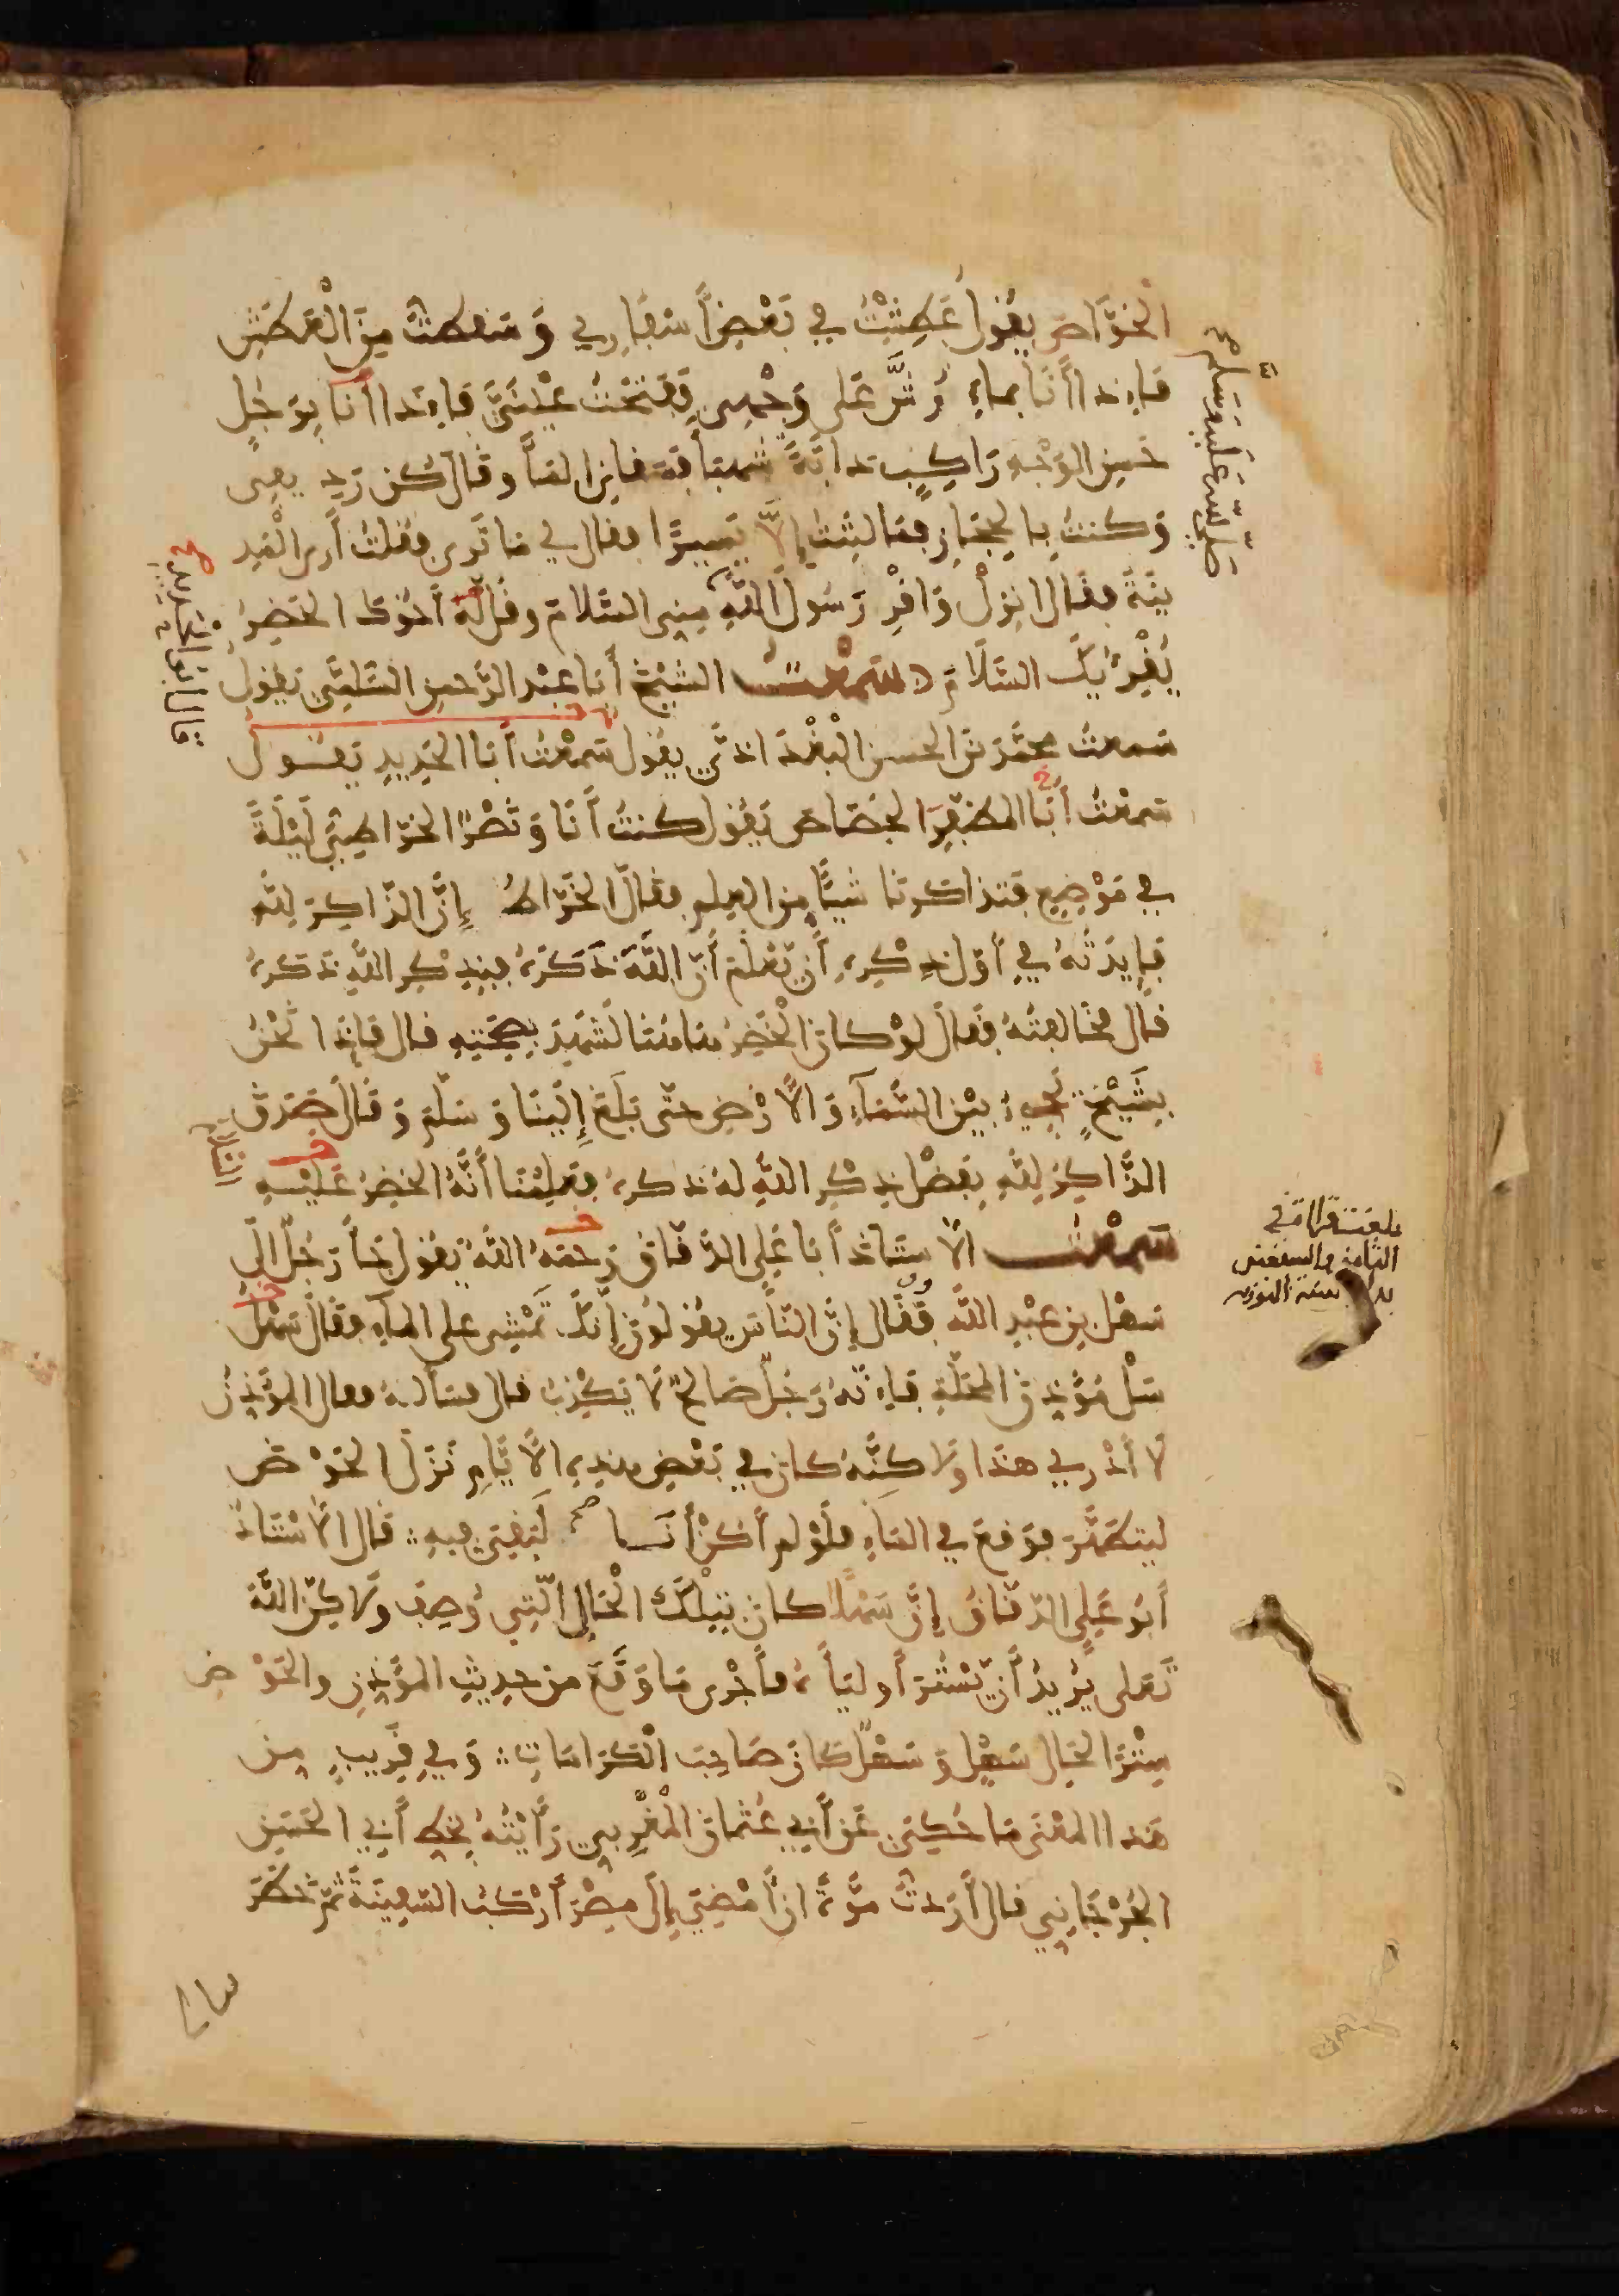 الْخَوَّاصَ يقُولُ عَطِشْتُ في بَعْضِ أَسْفَارِي وَسَقطتُ مِنَ الْعَطَشِ
فَإِذا أَنَا بماءٍ رُشَّ عَلى وَجْهِي فَفَتَحْتُ عَيْنَيَّ فَإِذَا أَنا بِرَجُلٍ
حَسِنِ الوَجْهِ رَاكِبٍ دابَّةً شَهبَاءَ فسقاني الماءَ وقَالَ كُن رَدِيفِي
وَكنتُ بِالحِجَازِ فما لبِثتُ إِلَّا يَسِيرًا فقال لي مَا تَرى فقُلْتُ أَرى الْمَدِ
ينَةَ فقَال انزِلْ وَاقْرِ رَسُولَ اللَّهِ مِنِي السَّلامَ وقُل لَّهُ أَخُوكَ الخَضِرُ
يُقْرِئُكَ السَّلَامَ سَمعْتُ الشَّيْخَ أَبا عبْد الرَّحمنِ السُّلَمِيَّ يَقُولُ
سَمعتُ محمَّدَ بْنَ الحسنِ الْبَغْدَاذِيَّ يقُول سَمِعْتُ أَبَا الحَدِيدِ يَقُولُ
سَمعْتُ أَبَا المظفَّرِ الجَصَّاصَ يَقُول كنتُ أَنَا وَنَصْرٌ الخرّاط لَيْلَةً
في مَوْضِعٍ فَتذاكَرْنَا شَيئًا مِنَ العِلمِ فقَالَ الخَرَّاطُ إِنَّ الذَّاكِرَ لِلَّهِ
فَايِدَتُهُ في أَوَّلِ ذِكْرِهِ أَن يَعْلَمَ أَنَّ اللَّهَ ذَكَرَهُ فبِذِكْرِ اللَّهِ ذَكَرَهُ
قال فخَالفتُهُ فقال لوْ كانَ الْخَضِرُ هَاهُنَا لَشَهِدَ بِصِحَّتِهِ قال فَإِذا نَحْنُ
بِشَيْخٍ يَجِيءُ بيْنَ السَّمَاءِ وَالْأَرْضِ حتَّى بَلَغَ إِلَيْنَا وَسَلَّمَ وَقَالَ صَدَقَ
الذَّاكِرُ لِلَّهِ بِفَضْلِ ذِكْرِ اللَّهِ لهُ ذكرهُ فعَلِمْنَا أَنَّهُ الخَضِرُ عَلَيْهِ
سَمعْتُ الأُستَاذَ أَبا عَلِيٍّ الدَّقَّاقَ رَحمَهُ اللَّهُ يَقُول جَاءَ رَجُلٌ الَى
سَهْلِ بنِ عَبْدِ اللَّهِ فقَال إِنَّ النَّاسَ يقُولُونَ إِنَّكَ تَمْشِي على الماءِ فقَالَ سَهْلٌ
سَلْ مُؤَذِّنَ المحَلَّةِ فَإِنَّهُ رَجُلٌ صَالِحٌ لَا يَكْذِبُ قال فسَألهُ فقال المؤَذِّنُ
لَا أَدْرِي هذَا ولَاكِنَّهُ كان في بَعْضِ هذِهِ الأَيَّامِ نَزَلَ الحَوْضَ
ليتطَهَّرَ فوَقعَ في المَاءِ فلَوْ لم أَكنْ أَنَا صح لَبَقِيَ فيهِ قال الأُسْتَاذُ
أَبُو عَلِيٍّ الدَّقَّاقُ إِنَّ سَهْلًا كانَ بِتِلْكَ الْحَالِ الَّتِي وُصِفَ ولَاكِنَّ اللَّهَ
تَعَلى يُرِيدُ أَن يَسْتُرَ أَولياءَهُ فأَجْرى مَا وَقَعَ من حدِيثِ المؤَذِّنِ والحَوْضِ
سِتْرًا لحَالِ سَهْلٍ وَسَهْلٌ كانَ صَاحِبَ الْكَرَامَاتِ وَفي قَرِيبٍ مِن
هَذا المَعْنَى مَا حُكِيَ عَنْ أَبِي عُثمانَ المَغْرِبِي رَأَيْتُهُ بِخَطِ أَبِي الحُسَيْنِ
الجُرْجَانِي قال أَرَدتُ مَرَّةً انْ أَمْضِيَ إِلَى مِصْرَ أَرْكَبُ السَّفِينَةَ ثمَّ خَطَرَ
صَلَّى اللَّهُ عَلَيْهِ وَسَلَّمَ صح
السلام
بلغت قراءة في